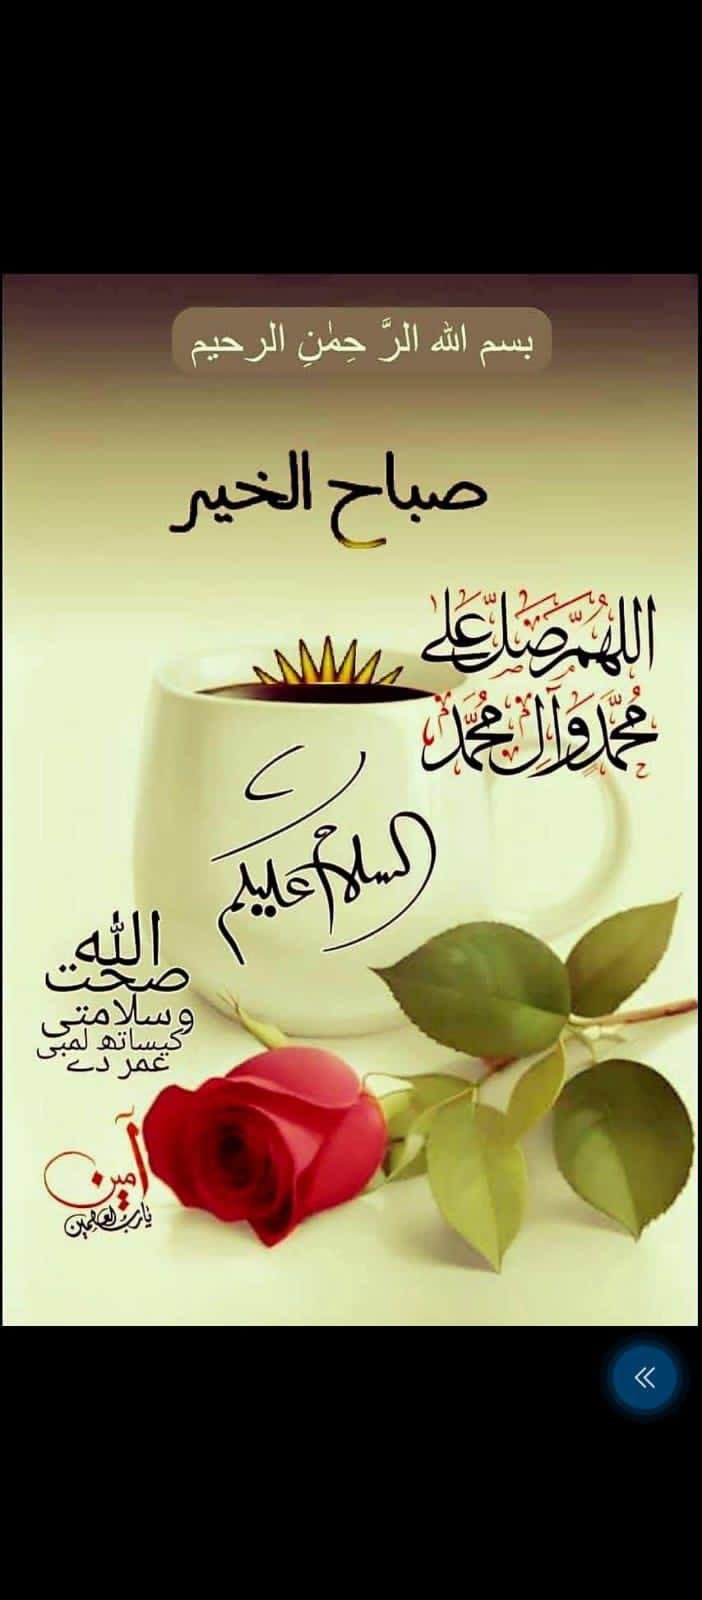 بسم الله الرَّ حِمٰنِ الرحیم
صباح الخير
اللهُمَّ صَلِّ عَلى
مُحَمَّدٍ وَآلِ مُحَمَّد
السلام عليكم
الله
صحت
و سلامتی
کیساتھ لمبی
عمر دے
آمین
یارب العالمین